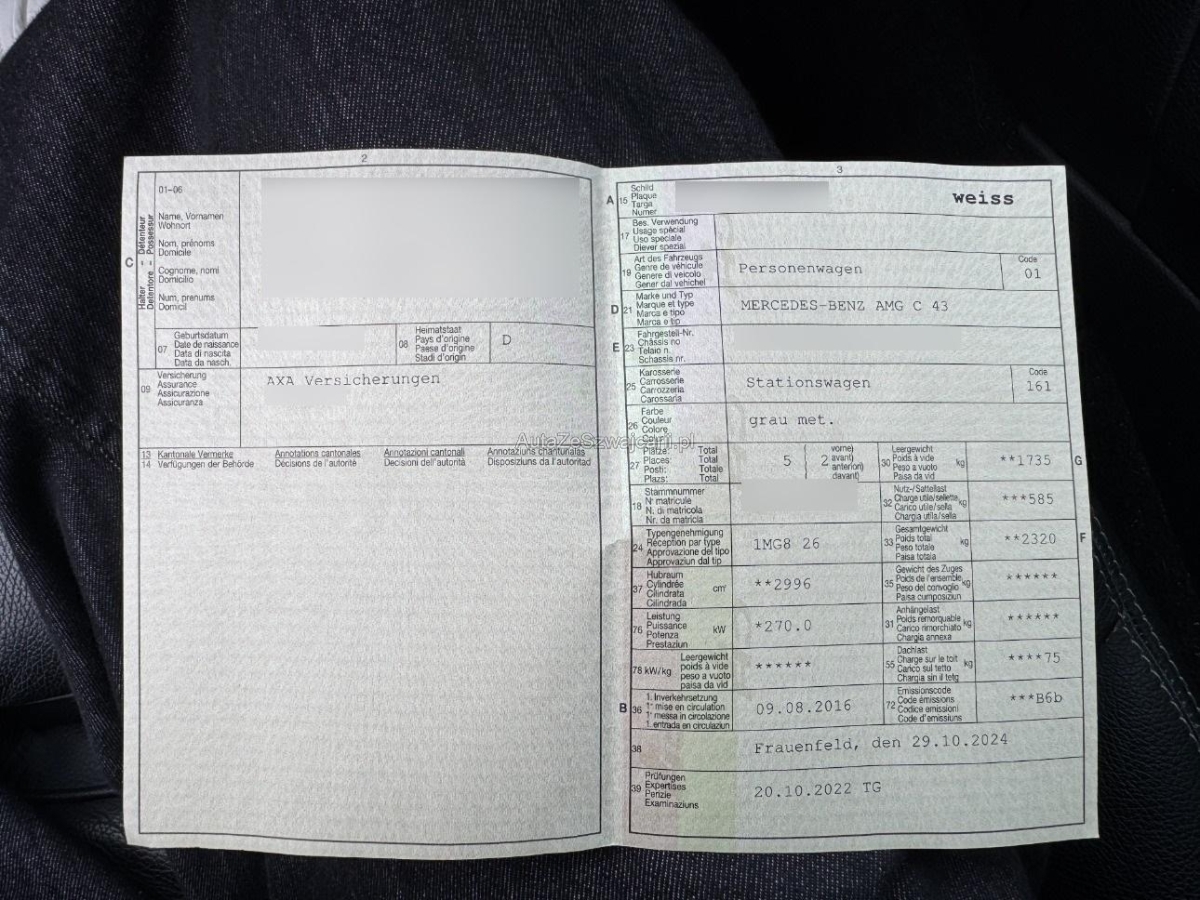 2
C
Halter – Détenteur
Detentore – Possessur
01–06
Name, Vornamen
Wohnort
Nom, prénoms
Domicile
Cognome, nomi
Domicilio
Num, prenums
Domicil
07
Geburtsdatum
Date de naissance
Data di nascita
Data da nasch.
08
Heimatstaat
Pays d'origine
Paese d'origine
Stadi d'origin
D
09
Versicherung
Assurance
Assicurazione
Assicuranza
AXA Versicherungen
13 Kantonale Vermerke Annotations cantonales Annotazioni cantonali Annotaziuns chantunalas
14 Verfügungen der Behörde Décisions de l'autorité Decisioni dell'autorità Disposiziuns da l'autoritad
3
A 15
Schild
Plaque
Targa
Numer
weiss
17
Bes. Verwendung
Usage spécial
Uso speciale
Diever spezial
19
Art des Fahrzeugs
Genre de véhicule
Genere di veicolo
Gener dal vehichel
Personenwagen
Code
01
D 21
Marke und Typ
Marque et type
Marca e tipo
Marca e tip
MERCEDES-BENZ AMG C 43
E 23
Fahrgestell-Nr.
Châssis no
Telaio n.
Schassis nr.
25
Karosserie
Carrosserie
Carrozzeria
Carossaria
Stationswagen
Code
161
26
Farbe
Couleur
Colore
Colur
grau met.
AutaZeSzwajcarii.pl
27
Plätze: Total
Places: Total
Posti: Totale
Plazs: Total
5
2
vorne)
avant)
anteriori)
davant)
30
Leergewicht
Poids à vide
Peso a vuoto
Paisa da vid
kg
**1735
G
18
Stammnummer
N° matricule
N. di matricola
Nr. da matricla
32
Nutz-/Sattellast
Charge utile/sellette
Carico utile/sella
Chargia utila/sella
kg
***585
24
Typengenehmigung
Réception par type
Approvazione del tipo
Approvaziun dal tip
1MG8 26
33
Gesamtgewicht
Poids total
Peso totale
Paisa totala
kg
**2320
F
37
Hubraum
Cylindrée
Cilindrata
Cilindrada
cm³
**2996
35
Gewicht des Zuges
Poids de l'ensemble
Peso del convoglio
Paisa cumposiziun
kg
******
76
Leistung
Puissance
Potenza
Prestaziun
kW
*270.0
31
Anhängelast
Poids remorquable
Carico rimorchiato
Chargia annexa
kg
******
78 kW/kg
Leergewicht
poids à vide
peso a vuoto
paisa da vid
******
55
Dachlast
Charge sur le toit
Carico sul tetto
Chargia sin il tetg
kg
****75
B 36
1. Inverkehrsetzung
1re mise en circulation
1a messa in circolazione
1. entrada en circulaziun
09.08.2016
72
Emissionscode
Code émissions
Codice emissioni
Code d'emissiuns
***B6b
38
Frauenfeld, den 29.10.2024
39
Prüfungen
Expertises
Perizie
Examinaziuns
20.10.2022 TG